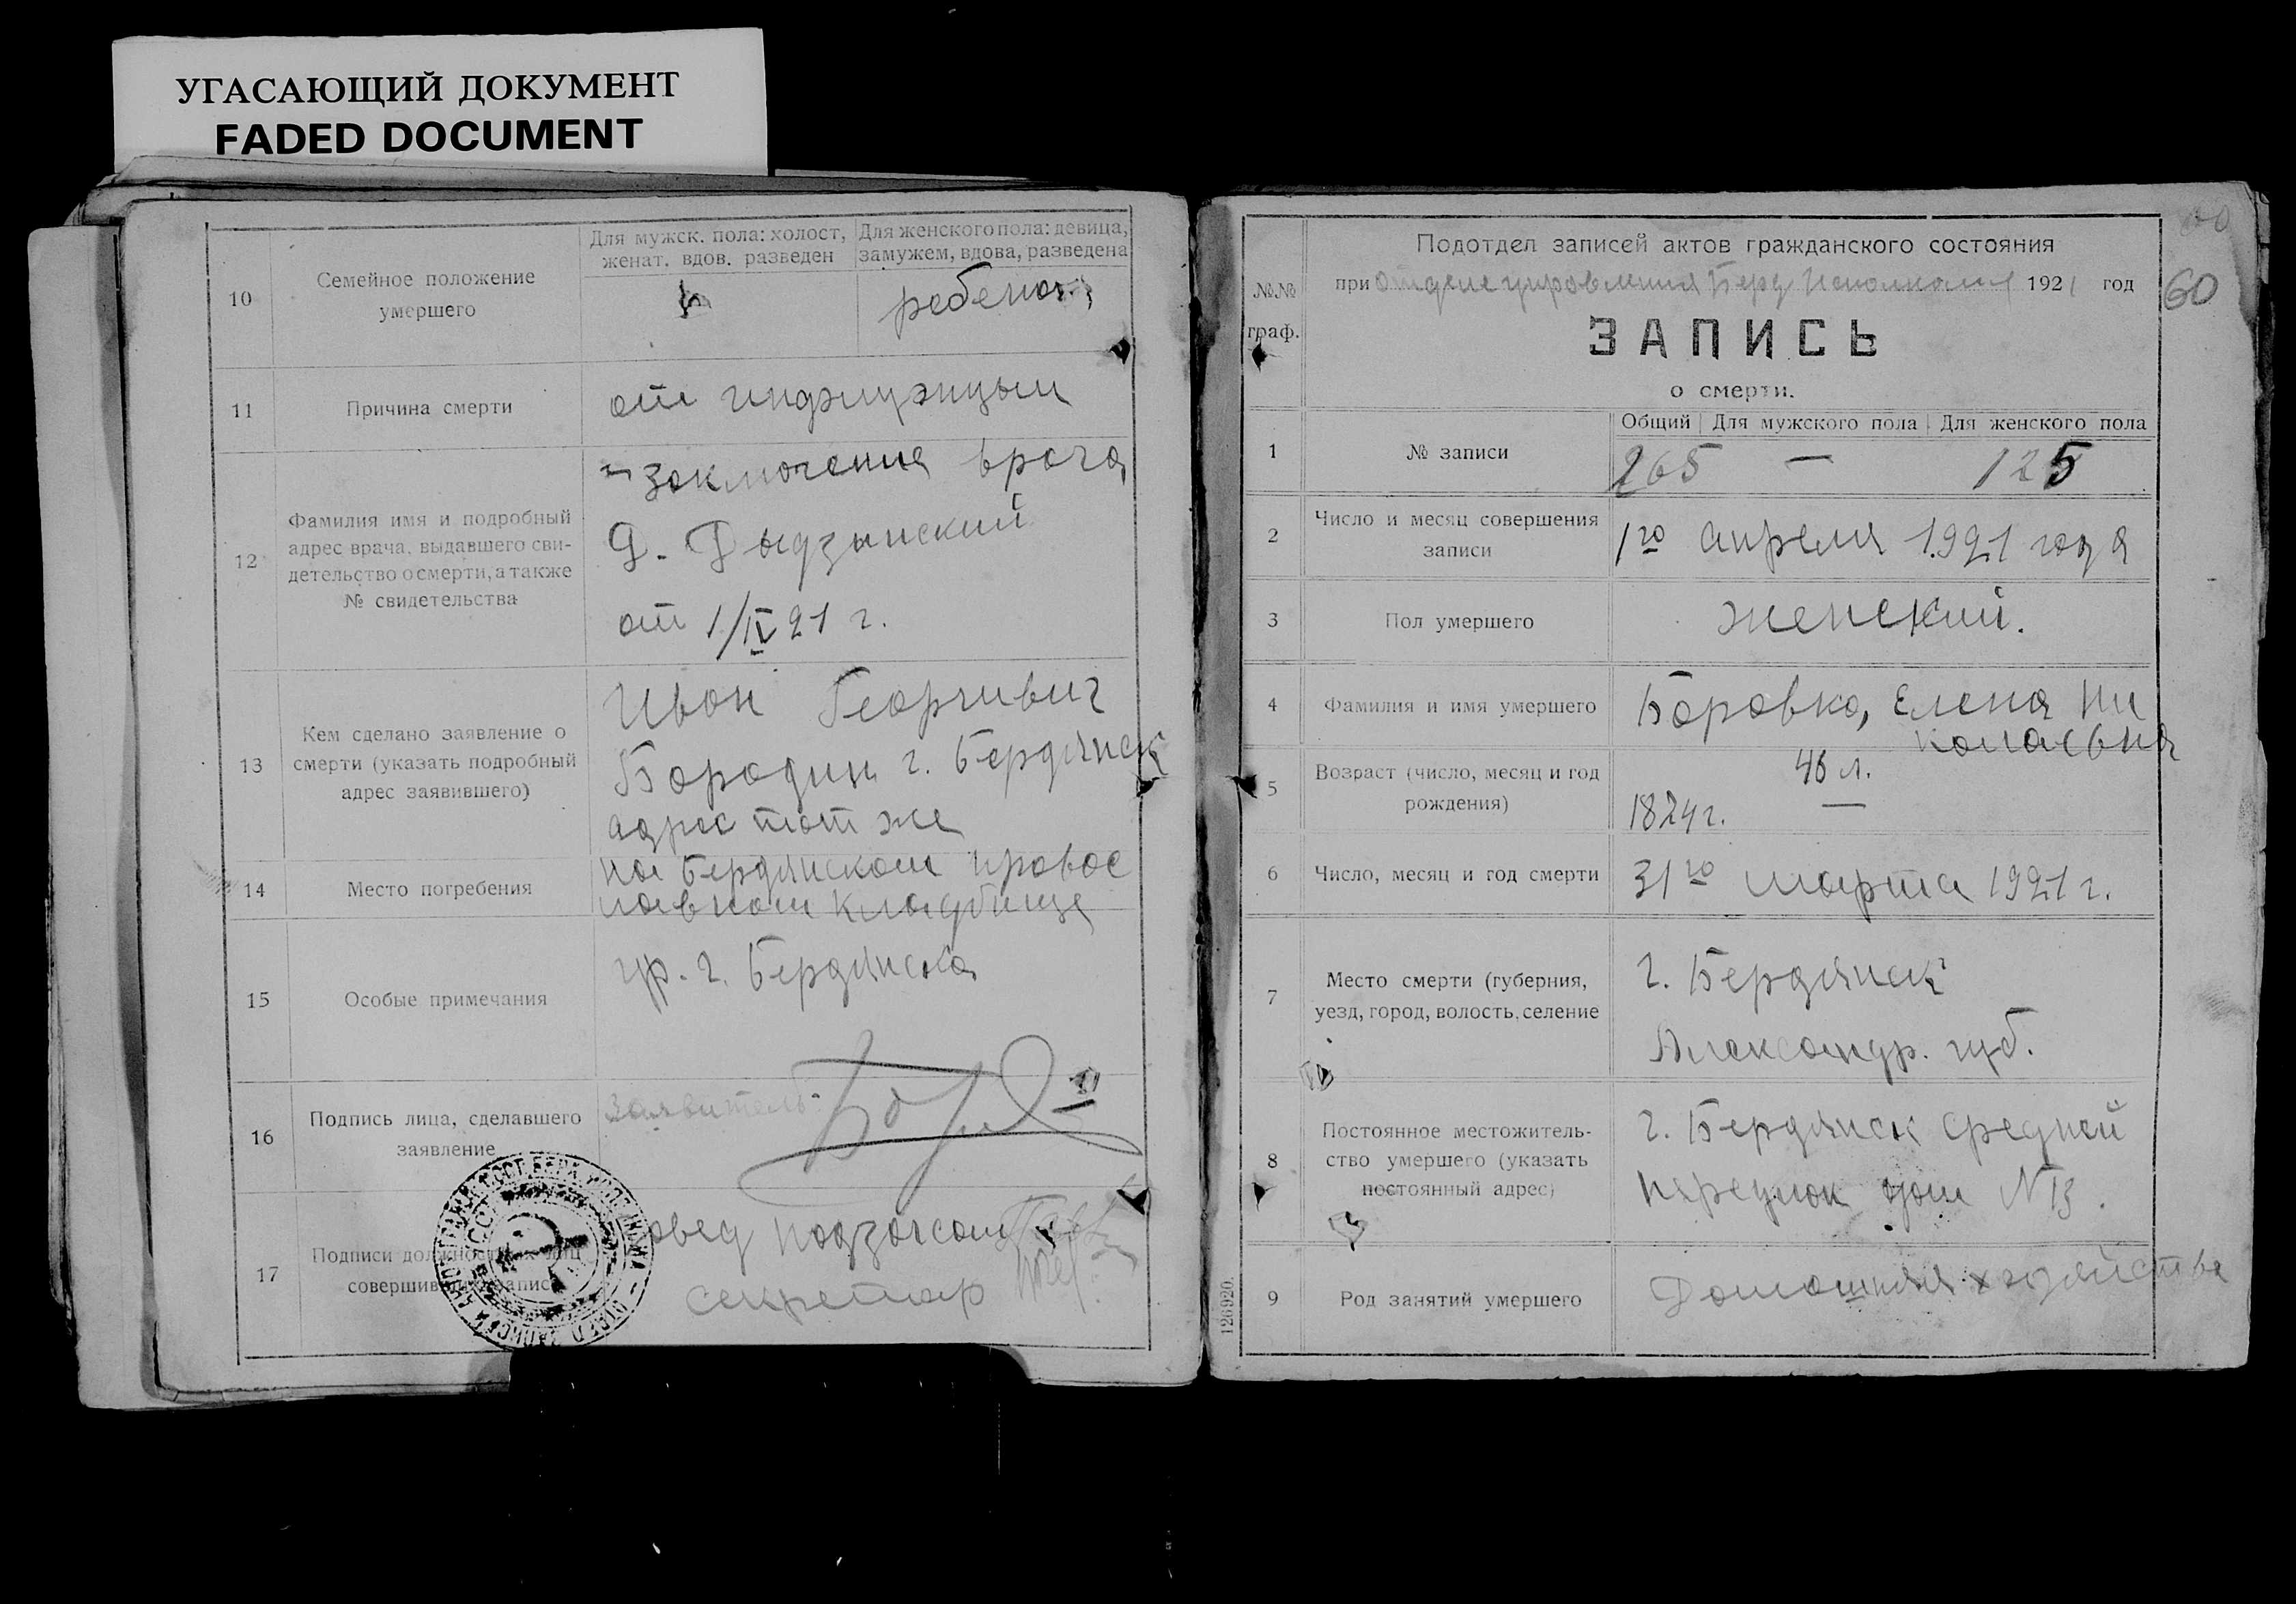 УГАСАЮЩИЙ ДОКУМЕНТ
FADED DOCUMENT
10
Семейное положение
умершего
Для мужск. пола: холост,
женат. вдов. разведен
Для женского пола: девица,
замужем, вдова, разведена
ребенок
11
Причина смерти
от инфлуэнцыи
12
Фамилия имя и подробный
адрес врача, выдавшего сви-
детельство о смерти, а также
№ свидетельства
заключения врача
Д. Дыдзинский
от 1/IV 21 г.
13
Кем сделано заявление о
смерти (указать подробный
адрес заявившего)
Иван Георгивич
Бородин г. Бердянск
адрес тот же
14
Место погребения
на Бердянском правос
лавном кладбище
15
Особые примечания
гр. г. Бердянска
16
Подпись лица, сделавшего
заявление
Заявитель:
17
Подписи должностных лиц
совершивших запись
Завед подзагсом
Секретар
Подотдел записей актов гражданского состояния
при Отделе управления Берд Исполкома 1921 год
60
№№
граф.
ЗАПИСЬ
о смерти.
1
№ записи
Общий Для мужского пола Для женского пола
265 — 125
2
Число и месяц совершения
записи
1го апреля 1921 года
3
Пол умершего
женский.
4
Фамилия и имя умершего
Боровко, Елена Ни
колаевна
5
Возраст (число, месяц и год
рождения)
46 л.
1824 г. —
6
Число, месяц и год смерти
31го марта 1921 г.
7
Место смерти (губерния,
уезд, город, волость, селение
г. Бердянск
Александр. губ.
8
Постоянное местожитель-
ство умершего (указать
постоянный адрес)
г. Бердянск средней
переулок дом N 13.
9
Род занятий умершего
Домошняя хозяйства
126920.